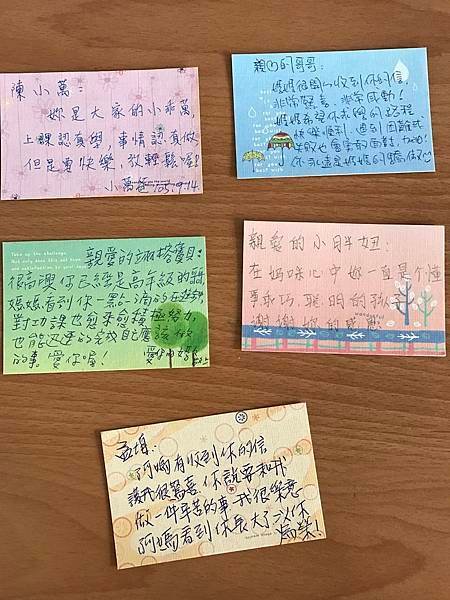 陳小萬：
妳是大家的小乖萬，
上課認真學，事情認真做，
但是要快樂、放輕鬆喔！
小萬 105.9.14
親的哥哥：
媽媽很開心收到你的信
非常驚喜、非常感動！
媽媽希望你求學的過程
快樂順利，遇到困難或
失敗也要勇敢面對，加油！
你永遠是媽媽的驕傲
親愛的寶貝：
很高興你已經是高年級的
媽媽看到你一點一滴的在進步
對功課也愈來愈積極努力，
也能迅速的完成自己應該做
的事。愛你喔！
愛你的媽
親愛的小胖妞：
在媽咪心中妳一直是個懂
事乖巧、聰明的孩
謝謝妳的感
孟
阿媽有收到你的信
讓我很驚喜 你說要和我
做一件辛苦的事 我很樂意
阿媽看到你長大了 以你
為榮！